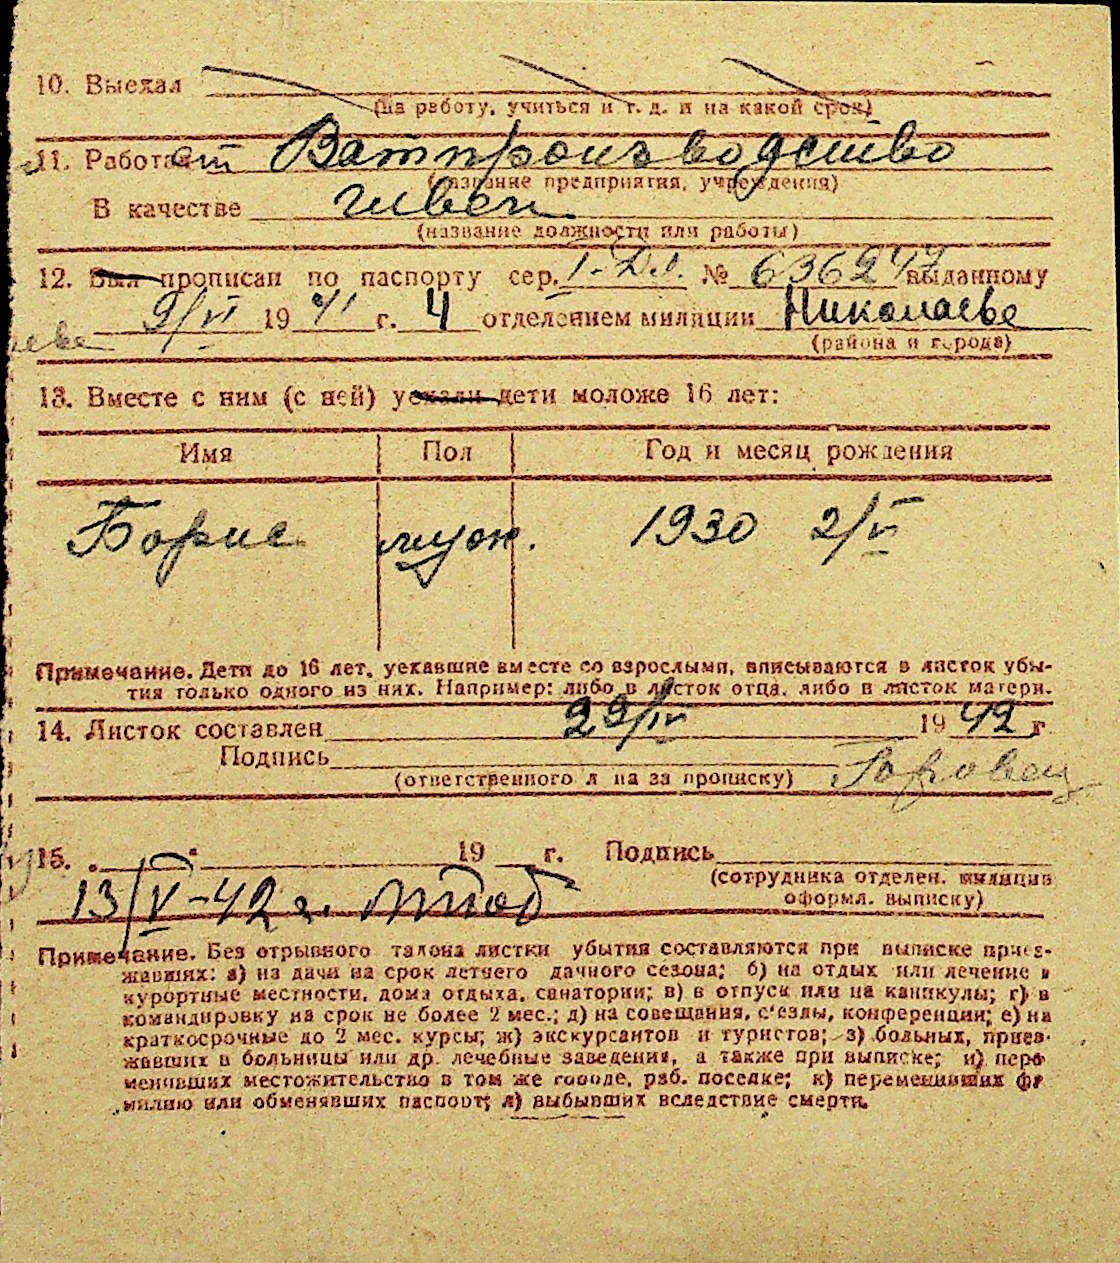 10. Выехал
(на работу, учиться и т. д. и на какой срок)
11. Работает Ватпроизводство
(название предприятия, учреждения)
В качестве швея
(название должности или работы)
12. Был прописан по паспорту сер. I-ДЛ. № 636247 выданному
9/VI 1941 г. 4 отделением милиции Николаеве
(района и города)
13. Вместе с ним (с ней) уехали дети моложе 16 лет:
Имя Пол Год и месяц рождения
Борис муж. 1930 2/V
Примечание. Дети до 16 лет, уехавшие вместе со взрослыми, вписываются в листок убы-
тия только одного из них. Например: либо в листок отца, либо в листок матери.
14. Листок составлен 29/IV 1942 г
Подпись
(ответственного л на за прописку)
15. „ “ 19 г. Подпись
(сотрудника отделен. милиции
13/V-42 г.
оформл. выписку)
Примечание. Без отрывного талона листки убытия составляются при выписке приез-
жавших: а) на дачи на срок летнего дачного сезона; б) на отдых или лечение в
курортные местности, дома отдыха, санатории; в) в отпуск или на каникулы; г) в
командировку на срок не более 2 мес.; д) на совещания, с'езды, конференции; е) на
краткосрочные до 2 мес. курсы; ж) экскурсантов и туристов; з) больных, приез-
жавших в больницы или др. лечебные заведения, а также при выписке; и) пере
менивших местожительство в том же городе, раб. поселке; к) переменивших фа
милию или обменявших паспорт; л) выбывших вследствие смерти.